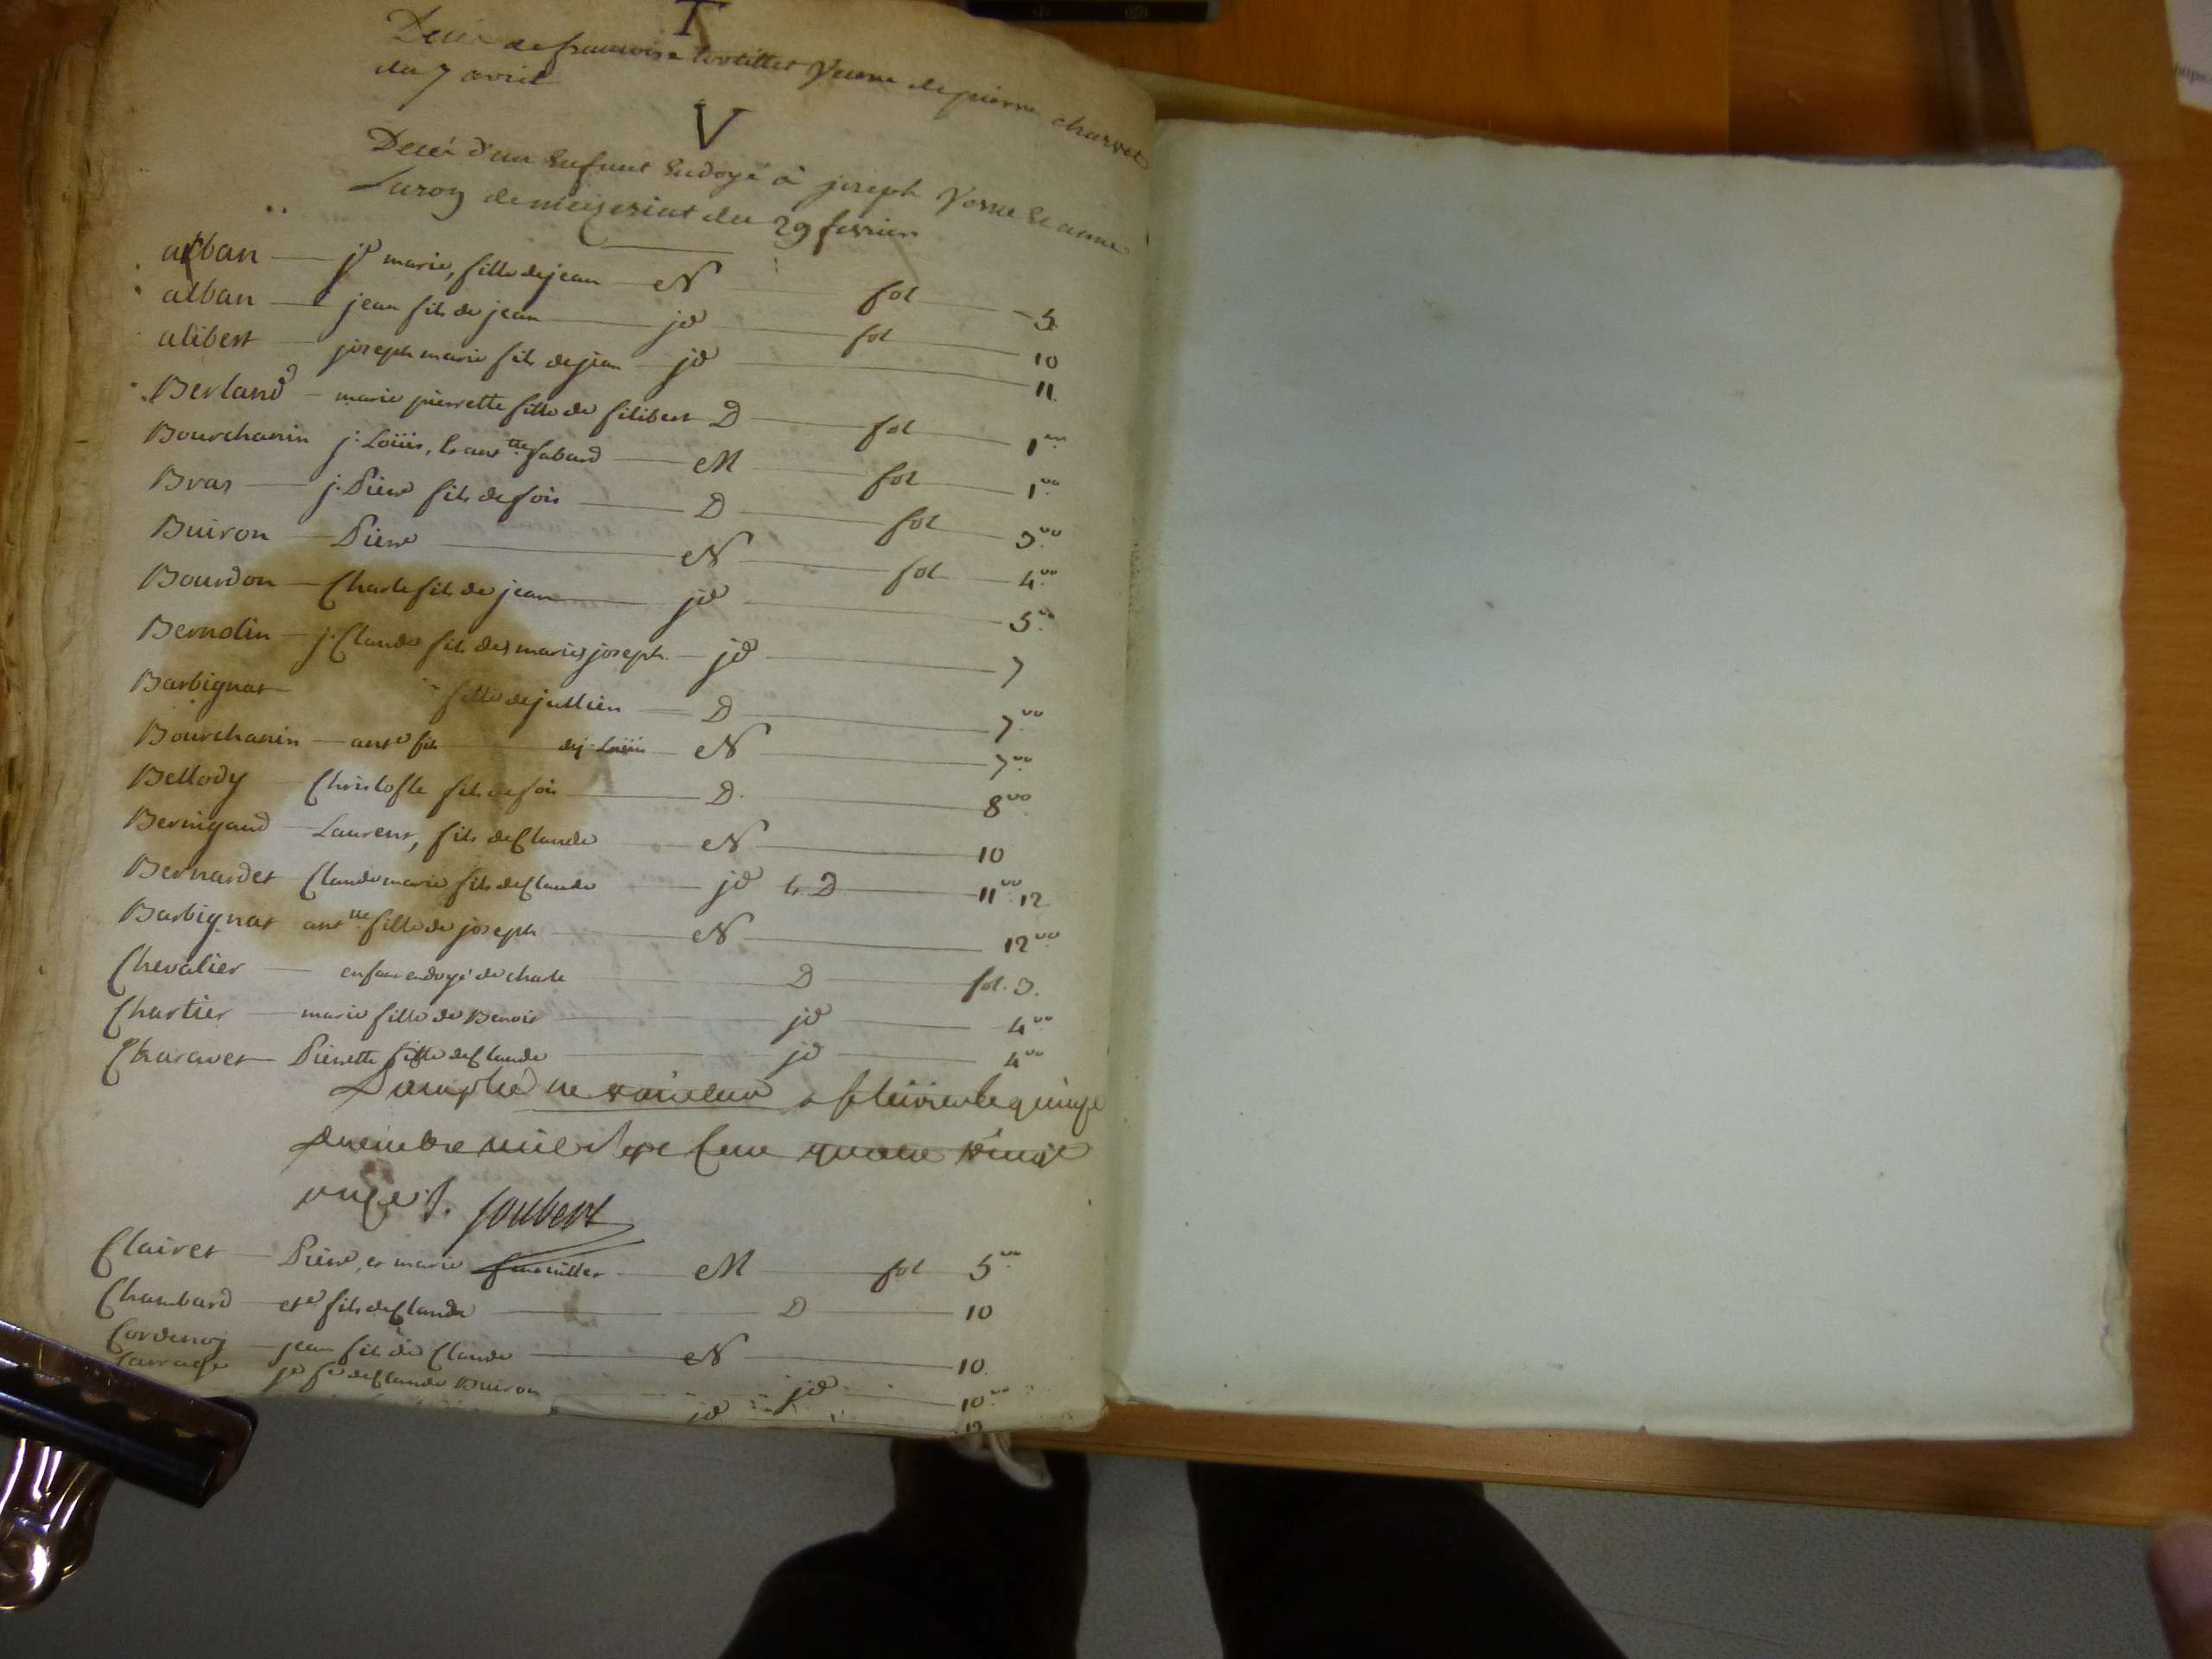 T
Decés de francoise tortillet veuve de pierre charvet
du 7 avril
V
Decés d'un Enfant Endoyé à joseph
Luroy de mezeriat du 29 fevrier
alban jh marie, fille de jean N fol 5
alban jean fils de jean jd fol 10
alibert joseph marie fils de jean jd 11
Berland marie pierrette fille de filibert D fol 1
Bourchanin j. Loüis, et anttte fabard M fol 1vo
Bras j. Pierre fils de fois D fol 3vo
Buiron Pierre N fol 4vo
Bourdon Charle fils de jean jd 5vo
Bernolin j. Claude fils des maries joseph jd 7
Barbignat fille de jullien D 7vo
Bourchanin ante fils de j. Loüis N 7vo
Bellody Christofle fils de fois D. 8vo
Bernigaud Laurent, fils de Claude N 10
Bernardet Claude marie fils de Claude jd & D 11vo 12
Barbignat antne fille de joseph N 12vo
Chevalier enfant endoyé de charle D fol. 3.
Chartier marie fille de Benoit jd 4vo
Charvet Pierrette fille de Claude jd 4vo
quinze
mil sept Cent quatre vingt
onze. Joubert
Clairet Pierre, et marie M fol 5vo
Chambard ete fils de Claude D 10
Cordenoj jean fils de Claude N 10
jh fs de Claude Buiron jd 10vo
jd 12